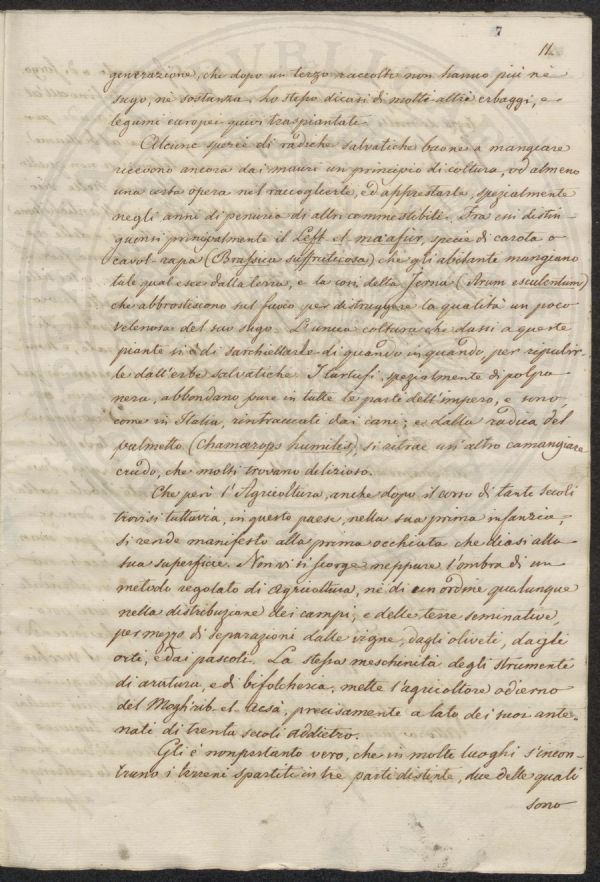 7
11.
generazione, che dopo un terzo raccolto non hanno più nè
sugo, nè sostanza. Lo stesso dicasi di molti altri erbaggi, e
legumi europei quivi traspiantati.
Alcune specie di radiche salvatiche buone a mangiare
ricevono ancora dai mauri un principio di coltura, od almeno
una certa opera nel raccoglierle, ed apprestarle, spezialmente
negli anni di penuria di altri commestibili. Fra cui distin-
guonsi principalmente il Left el maafur, specie di carota o
cavol-rapa (Brassica suffruticosa) che gli abitanti mangiano
tale qual esce dalla terra, e la così detta Jerna (Arum esculentum)
che abbrostiscono sul fuoco per distruggere la qualità un poco
velenosa del suo sugo. L'unica coltura che dassi a queste
piante si è di sarchiellarle di quando in quando, per ripulir-
le dall'erbe salvatiche. I tartufi, spezialmente di polpa
nera, abbondano pure in tutte le parte dell'impero, e sono
come in Italia, rintracciate dai cani; e dalla radica del
palmetto (Chamærops humiles) si ritrae un'altro camangiare
crudo, che molti trovano delizioso.
Che però l'Agricoltura, anche dopo il corso di tante secoli
trovisi tuttavia, in questo paese, nella sua prima infanzia,
si rende manifesto alla prima occhiata che diasi alla
sua superficie. Non vi si scorge neppure l'ombra di un
metodo regolato di agricoltura, nè di un ordine qualunque
nella distribuzione dei campi, e delle terre seminative,
per mezzo di separazioni dalle vigne, dagli oliveti, dagli
orti, e dai pascoli. La stessa meschinità degli strumenti
di aratura, e di bifolcheria, mette l'agricoltore odierno
del Moghrib el acsà, precisamente a lato dei suoi ante-
nati di trenta secoli addietro.
Gli è nonpertanto vero, che in molte luoghi s'incon-
trano i terreni spartiti in tre parti distinte, due delle quali
sono